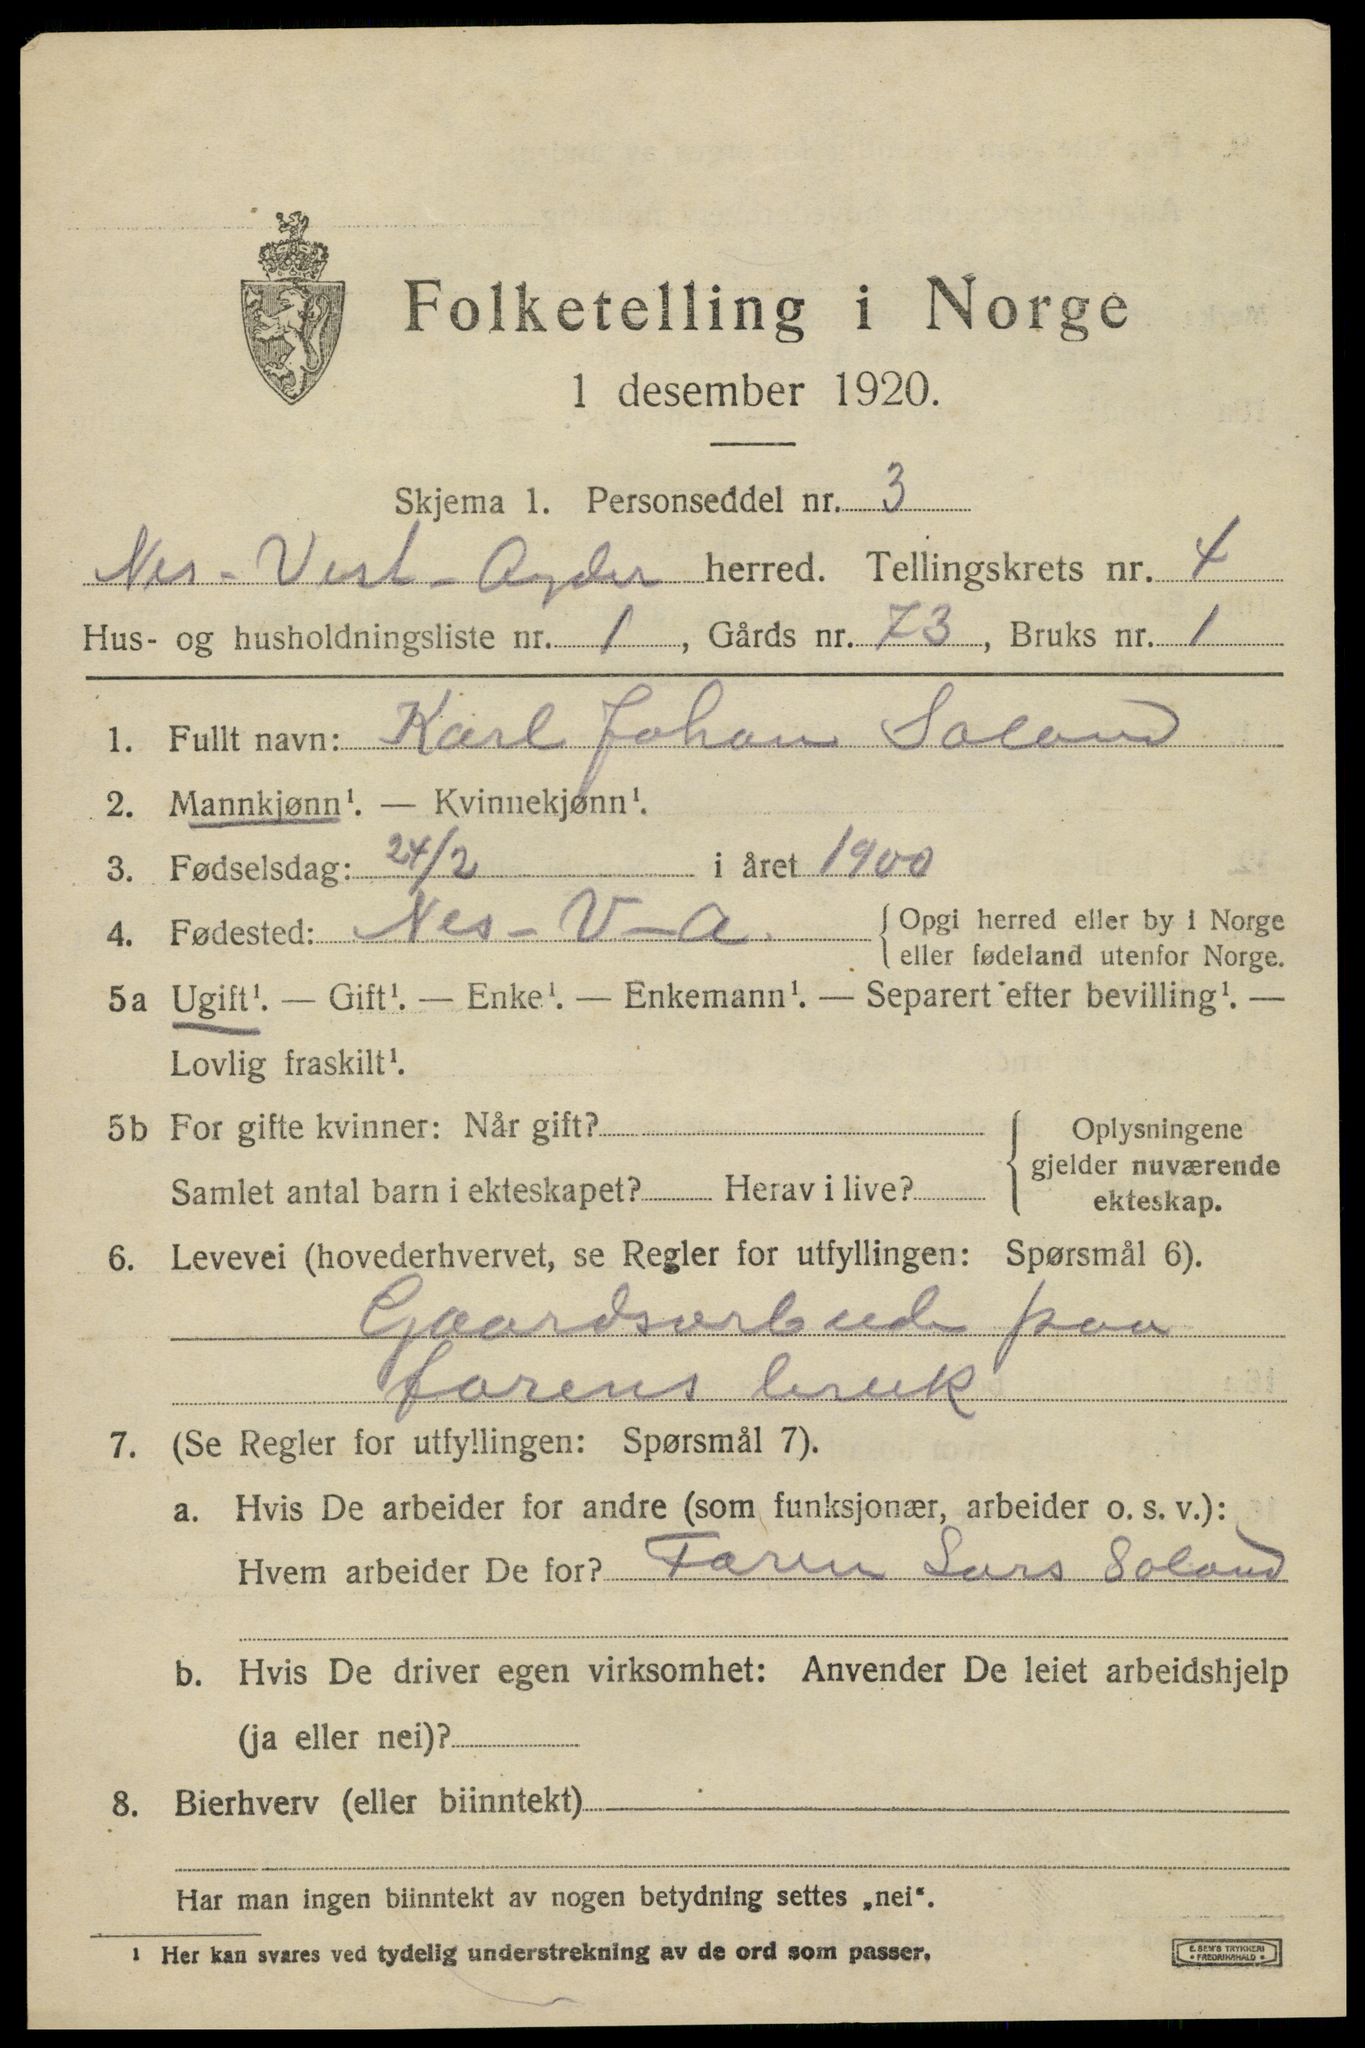 Folketelling i Norge
1 desember 1920.
Skjema 1. Personseddel nr. 3
Nes - Vest - Agder herred. Tellingskrets nr. 4
Hus- og husholdningsliste nr. 1, Gårds nr. 73, Bruks nr. 1
1. Fullt navn: Karl Johan Soland
2. Mannkjønn¹. — Kvinnekjønn¹.
3. Fødselsdag: 24/2 i året 1900
4. Fødested: Nes - V - A. { Opgi herred eller by i Norge
eller fødeland utenfor Norge.
5a Ugift¹. — Gift¹. — Enke¹. — Enkemann¹. — Separert efter bevilling¹. —
Lovlig fraskilt¹.
5b For gifte kvinner: Når gift? { Oplysningene
gjelder nuværende
Samlet antal barn i ekteskapet? Herav i live? ekteskap.
6. Levevei (hovederhvervet, se Regler for utfyllingen: Spørsmål 6).
Gaardsarbeider paa
farens bruk
7. (Se Regler for utfyllingen: Spørsmål 7).
a. Hvis De arbeider for andre (som funksjonær, arbeider o. s. v.):
Hvem arbeider De for? Faren Lars Soland
b. Hvis De driver egen virksomhet: Anvender De leiet arbeidshjelp
(ja eller nei)?
8. Bierhverv (eller biinntekt)
Har man ingen biinntekt av nogen betydning settes „nei“.
¹ Her kan svares ved tydelig understrekning av de ord som passer.
E. SEM'S TRYKKERI
• FREDRIKSHALD •